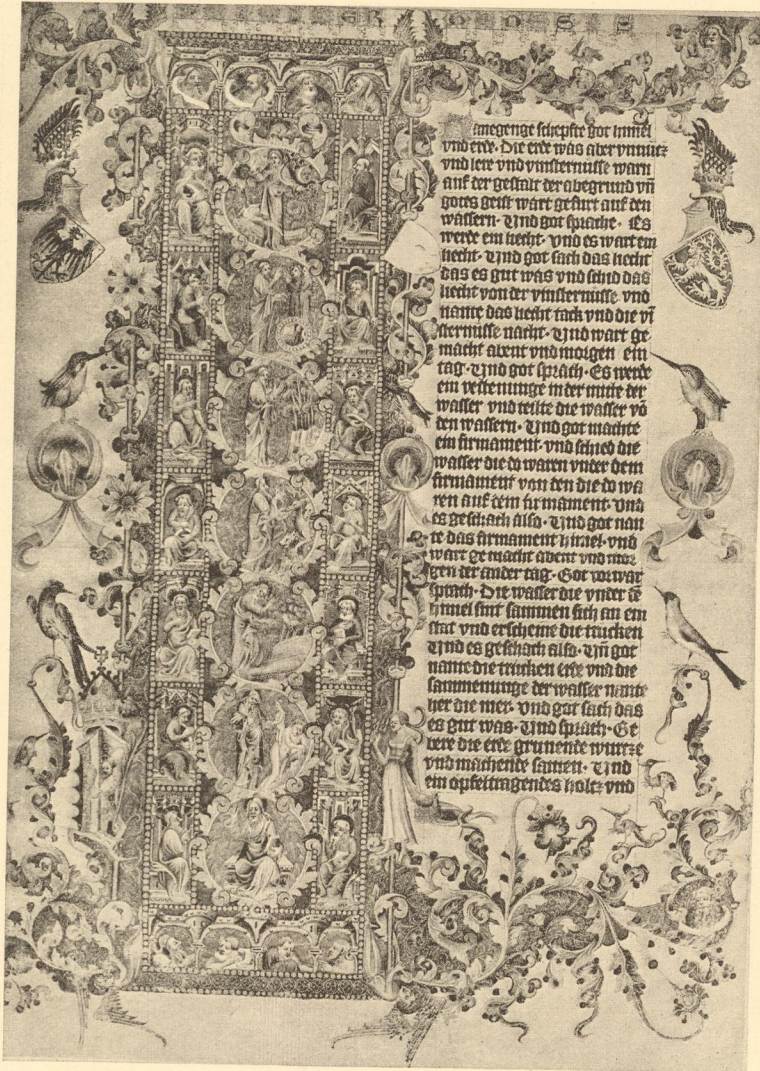 anegenge schepfte got himel
vnd erde · Die erde was aber vnnutz
vnd lere vnd vinsternusse warn
auf der gestalt der abegrund vn̄
gotes geist wart gefurt auf den
wassern · Vnd got sprache · Es
werde ein liecht · vnd es wart ein
liecht · Vnd got sach das liecht
das es gut was vnd schid das
liecht von der vinsternisse vnd
nante das liecht tack vnd die vī
sternisse nacht · Vnd wart ge
macht abent vnd morgen ein
tag · Vnd got sprach · Es werde
ein vestenunge in der mitte der
wasser vnd teilte die wasser vō
den wassern · Vnd got machte
ein firmament · vnd schied die
wasser die do waren vnder dem
firmament von den die do wa
ren auf dem firmament · vnd
es geschach also · Vnd got nan
te das firmament himel · vnd
wart gemacht abent vnd mor
gen der ander tag · Got vorwar
sprach · Die wasser die vnder dē
himel sint sammen sich an ein
stat vnd erscheine die trucken
Vnd es geschach also · Vn̄ got
nante die trucken erde vnd die
sammenunge der wasser nante
her die mer · vnd got sach das
es gut was · Vnd sprach · Ge
bere die erde grunende wurtze
vnd machende samen · Vnd
ein opfeltragendes holtz vnd